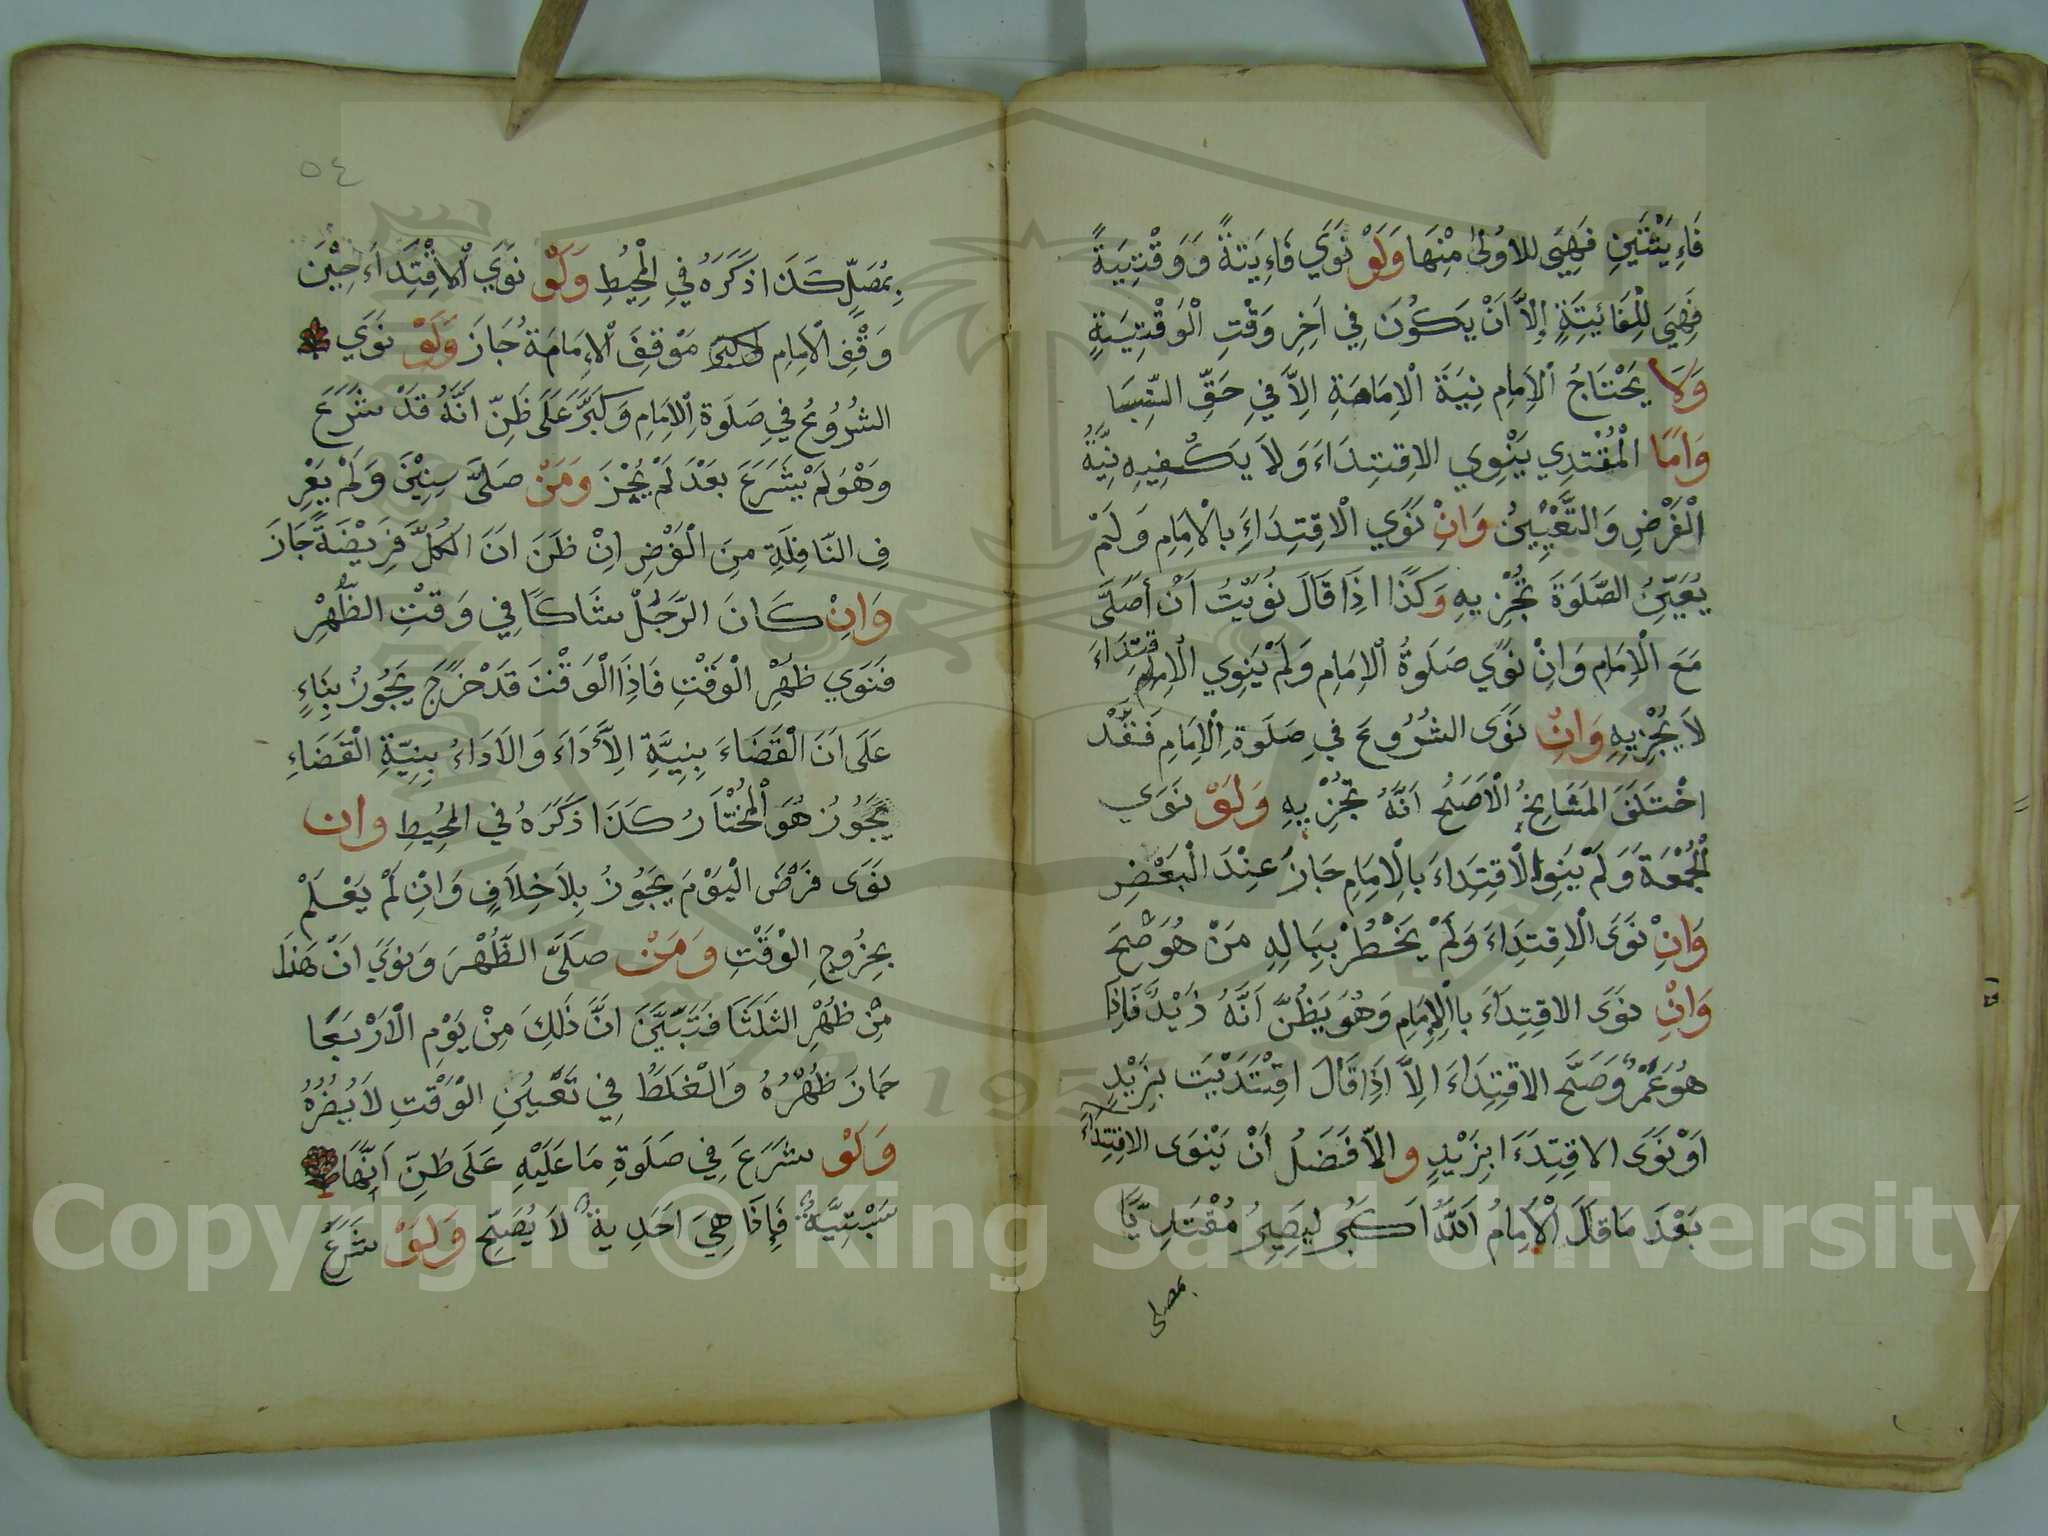 فَاءِيَتْنَيْنِ فَهِيَ للاوُلىٰ مِنْهَا وَلَوْ نَوَي فَاءِيَتةً وَوَقْتِيَةً
فَهِيَ لِلْفَائيِتَةِ إِلاَّ اَنْ يَكُونَ فِي اَخِرِ وَقْتِ الْوَقْتِيَةِ
وَلَا يَحْتَاجُ الْاِمَامِ نِيَةَ الْاِمَامَةِ اِلاَّ فِي حَقِّ النِّسَا
وَاَمَا الْمُقْتدِي يَنْوِي الاقِتِدَاءَ وَلاَ يَكْفِيهِ نِيَّةُ
الْفَرْضِ وَالتَّعْيِينُ وَانِْ نَوَي الْاقِتِدَاءَ بالْاِمَامِ وَلَمْ
يُعَيِّنُ الصَّلَوةَ تُجْزِيهِ وَكَذَا اذَِا قَالَ نُوَيْتُ اَنْ اُصَلَّى
مَعَ الْاِمَامِ وَانِْ نوَي صَلَوةُ الْاِمَامِ وَلَمْ يَنِوي الْاِقتِدَاءَ
لاَ يُجْزِيِهِ وَانِْ نَوَى الشُرُوعَ فيِ صَلَوةِ الْاِمَامِ فَقَدْ
اخْتَلَفَ المَشَايخُ الْاَصَحُ اَنَّهُ تُجْزِيِهِ وَلَوْ نَوَي
الْجُمْعَةَ وَلَمْ يَنوِا الْاقِتِدَاءَ بالْاِمَامِ جَازَ عِنْدَ الْبَعْضِ
وَانِْ نَوَى الْاقِتِدَاءَ وَلَمْ يَخْطُرْ بِبَالِهِ مَنْ هُوَ صْحَ
وَانِْ نوَى الاقِتِدَاءَ باالْاِمَامِ وَهُوَ يَظُنَّ اَنَّهُ زَيْدٌ فَاِذَا
هُوَ عَمْرٌ وَصَحَّ الاقِتِدَاءَ الِاَّ اذَِا قَالَ اقِتَْدَيْتَ بِزَيْدٍ
اَوْ نَوَى الاقِتِدَءَ ابِزَيْدٍ والاَّفَضَلُ اَنْ يَنْوَى الاقِتِدَاءَ
بَعْدَ مَا قالَ الْاِمامُ اَللّٰهُ اَكْبَر لِيَصِيرُ مُقْتَدِيًا
بمصلى
٥٤
بِمُصَلٍّ كَذَا ذَكَرَهُ فيِ الْمحِيُطِ وَلَوْ نوَي الْاقِْتِدَاءَ حِيْنَ
وَقْفِ الْاِمَامِ مَوْقِفَ الْاِمَامَةُ جَازَ وَلَوْ نَوَي
الشُرُوعُ فيِ صَلَوةِ الْاِمَامِ وَكبَّرَ عَلَى ظَنِّ انَّهُ قَدْ شَرَعَ
وَهْوُ لَمْ يَشْرَعَ بَعْدَ لَمْ يُجْزَ وَمَنْ صَلَّى سِنِيْنَ وَلَمْ يَعْرِ
فِ النَّافِلَةِ مِنَ الْفَرْضِ انِْ ظَنَ انَ الكُلَّ فَرِيْضَةً جَازَ
وَانِْ كَانَ الرَّجُلْ شَاكًا فِي وَقتِ الظُّهْرِ
فَنَوَي ظُهْرِ الْوَقْتِ فَاذَِا الْوَقْتَ قَدْ خَرَجَ يَجُوزُ بِنَاءٍ
عَلَى اَنَ الْقَضَاءَ بِنِيَّةِ الاَْدَاءَ وَالاَدَاءُ بِنِيَّةِ الْقَضَاءِ
يَجُوزُ هُوَ الْمُخْتَارُ كَذَا ذَكَرَهُ في المحِيُطِ وان
نَوَى فرْضَ الْيَوْمَ يَجُوزُ بِلاَ خِلاَفٍ وَانِْ لَمْ يَعْلَمْ
بِخِرُوجِ الوَقْتِ وَمَنْ صَلَّى الظُّهْرَ وَنوَيَ اَنْ هَذَا
مِنْ ظُهْرِ الثلَثَا فَتَبَيَّنَ انَّ ذَلِكَ مِنْ يَوْمِ الْاَرْبَعَا
جَازَ ظُهْرُهُ وَالْغلَطُ فيِ تَعْييُنِ الوَقْتِ لاَ يُضُرُهُ
وَلَوْ شَرَعَ فيِ صَلَوةِ مَا عَلَيْهِ عَلَى ظَنِّ اَنِّهَا
سَبْتِيَّةٌ فَإِذَا هِيَ اَحَدِيةٌ لاَ يُصَحِّ وَلَوْ شَرَعَ
Copyright © King Saud University